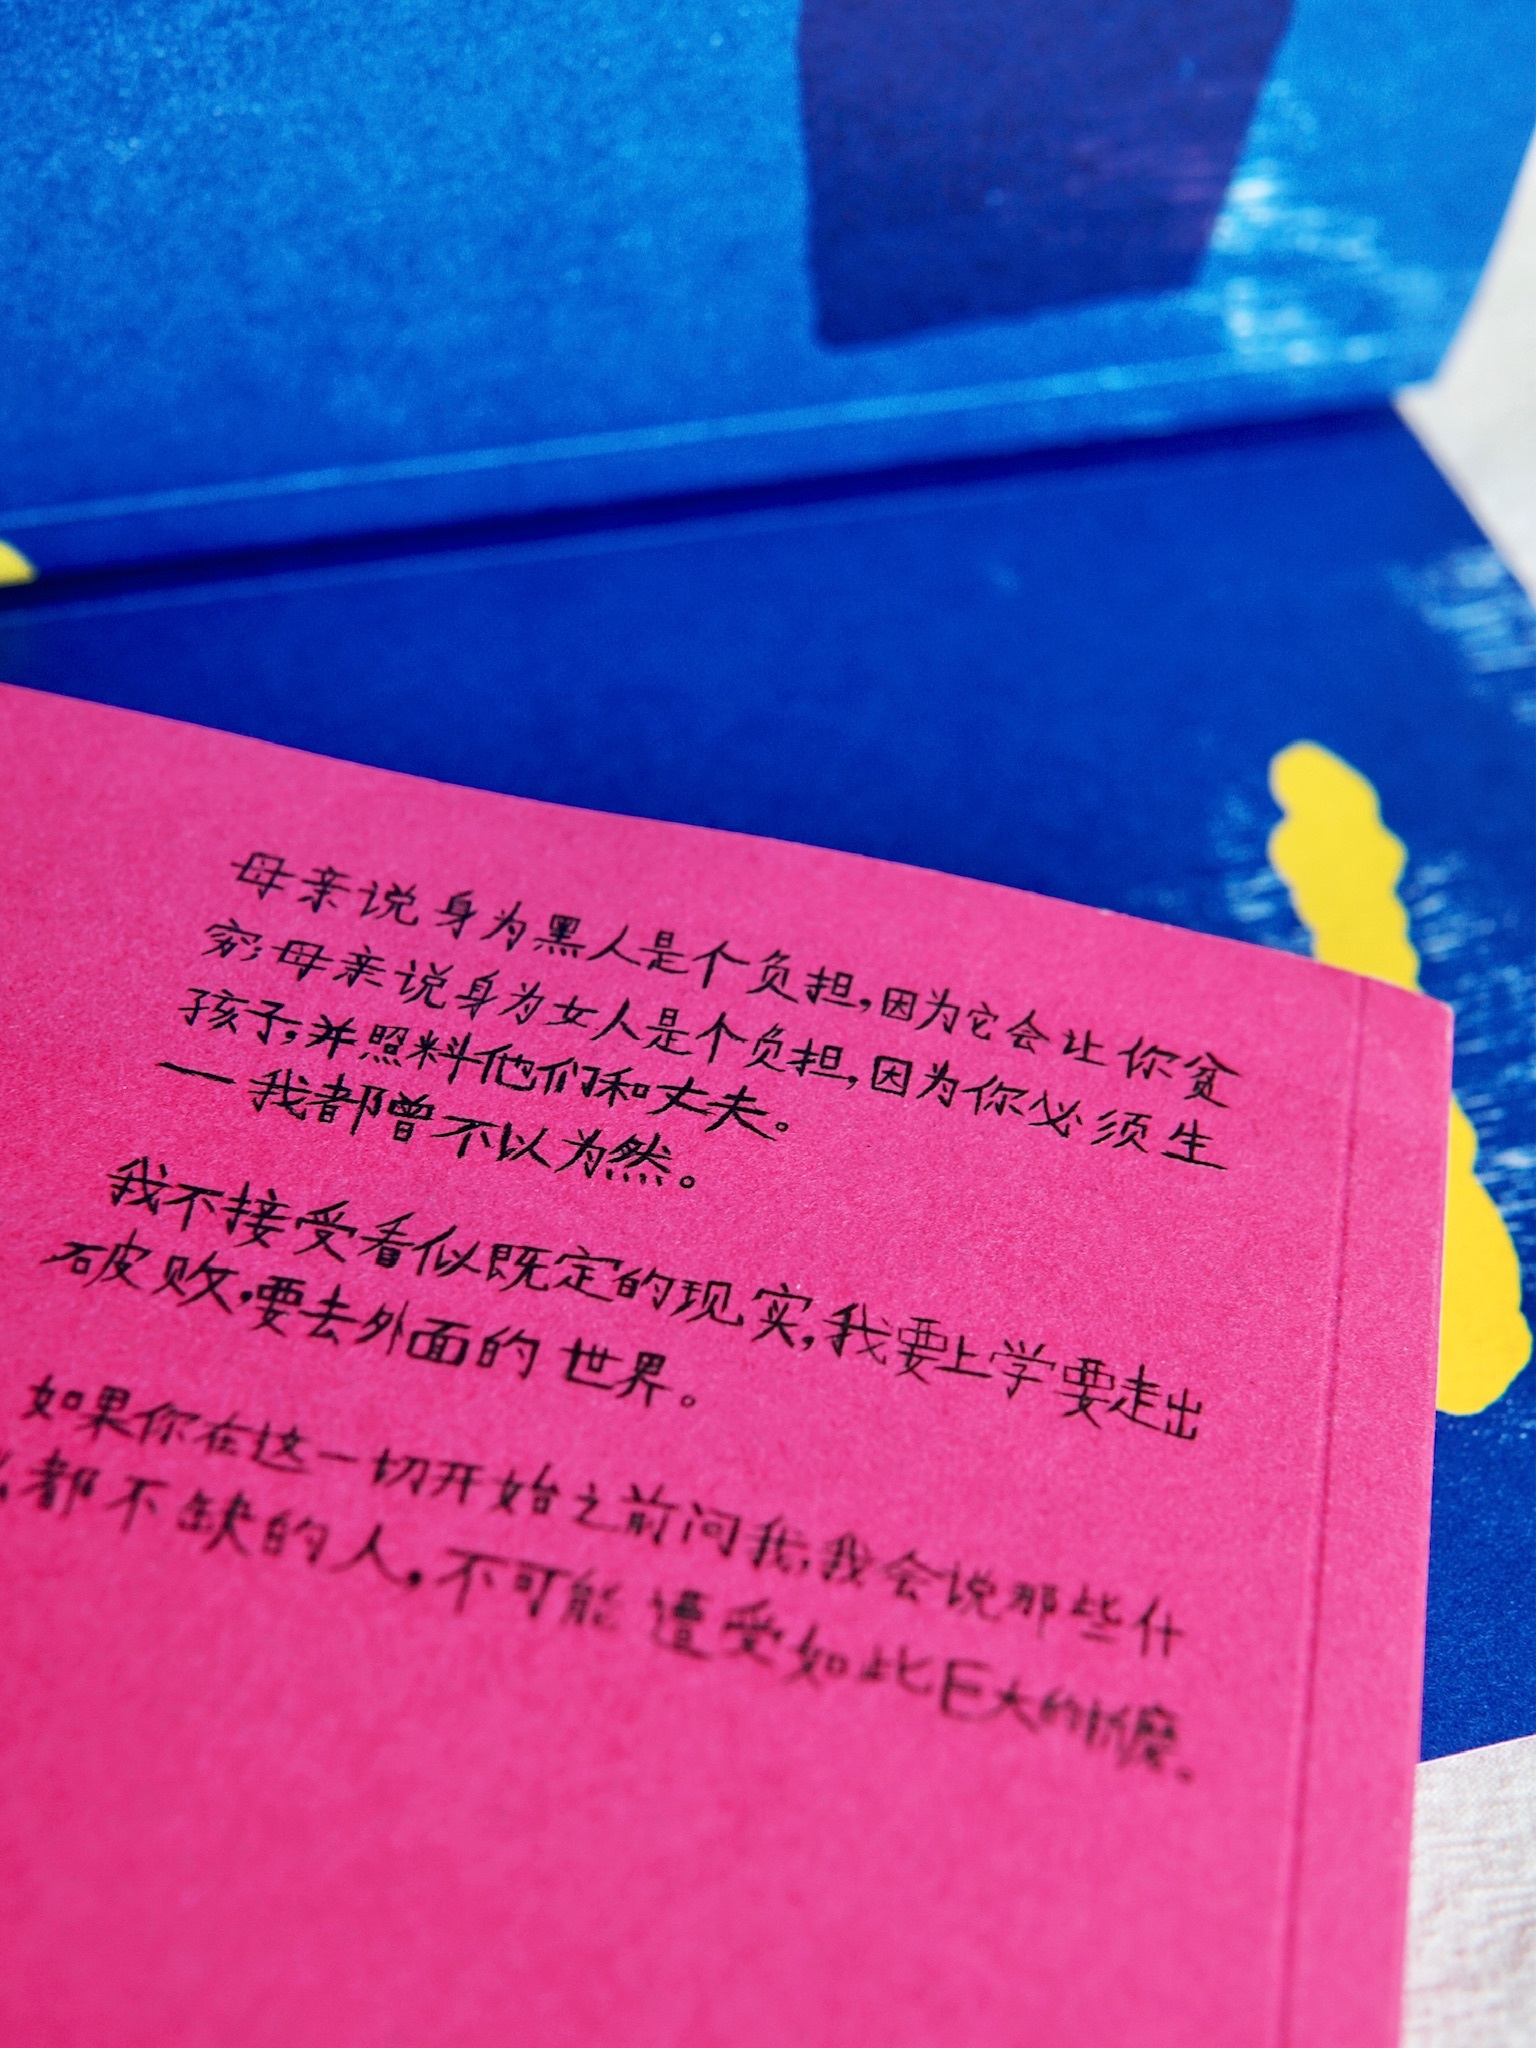 母亲说身为黑人是个负担,因为它会让你贫
穷;母亲说身为女人是个负担,因为你必须生
孩子,并照料他们和丈夫。
一我都曾不以为然。
我不接受看似既定的现实,我要上学要走出
破败,要去外面的世界。
如果你在这一切开始之前问我,我会说那些什
么都不缺的人,不可能遭受如此巨大的折磨。